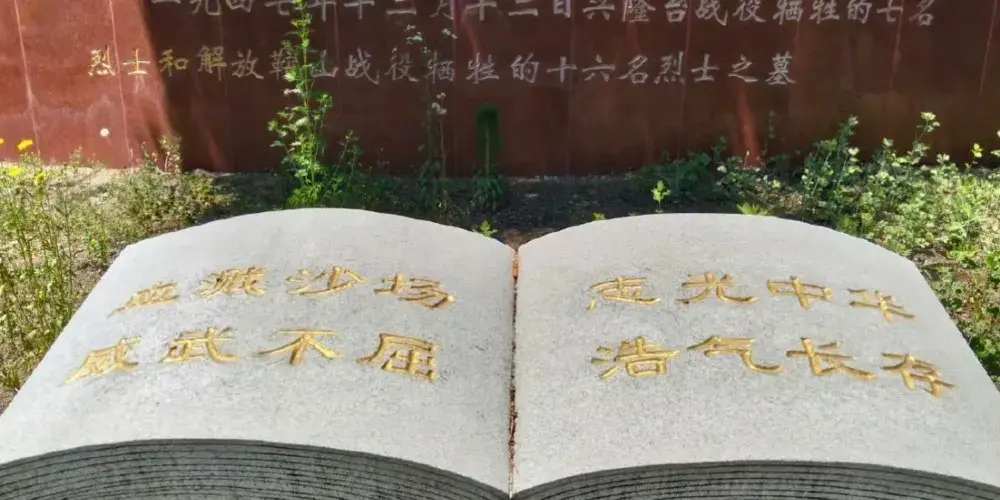 一九四七年十二月十二日兴隆台战役牺牲的七名
烈士和解放鞍山战役牺牲的十六名烈士之墓
血溅沙场
威武不屈
志光中华
浩气长存